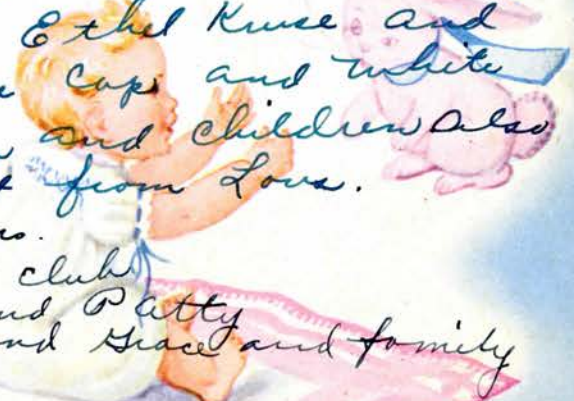 Ethel Kruse and
Cap and white
and children also
from Lovs.
club
and Patty
and Grace and family